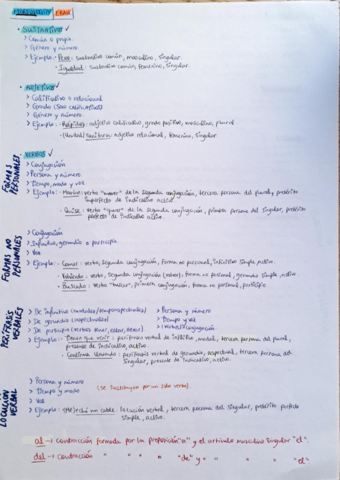 EBAU
• SUSTANTIVO ✓
> Común o propio.
> Género y número.
> Ejemplo: - Peso: sustantivo común, masculino, singular.
- Igualdad: sustantivo común, femenino, singular.
• ADJETIVO ✓
> Calificativo o relacional
> Grado (solo calificativo)
> Género y número.
> Ejemplo: - Rápidos: adjetivo calificativo, grado positivo, masculino, plural
- (Unidad) Sanitaria: adjetivo relacional, femenino, singular.
• VERBOS ✓
FORMAS PERSONALES
> Conjugación
> Persona y número
> Tiempo, modo y voz.
> Ejemplo: - verbo de la segunda conjugación, tercera persona del plural, pretérito
imperfecto de indicativo activo.
- Quise: verbo "querer" de la segunda conjugación, primera persona del singular, pretérito
perfecto de indicativo activo.
FORMAS NO PERSONALES
> Conjugación
> Infinitivo, gerundio o participio
> Voz
> Ejemplo: - Comer: verbo, segunda conjugación, forma no personal, infinitivo simple, activo.
- verbo, segunda conjugación, forma no personal, gerundio simple, activo.
- verbo primera conjugación, forma no personal, participio.
PERÍFRASIS VERBALES
> De infinitivo
> De gerundio (aspectuales)
> De participio
> Persona y número
> Tiempo y voz
> Verbo/conjugación
> Ejemplo: - Tienen que venir: perífrasis verbal de infinitivo, modal, tercera persona del plural,
presente de indicativo, activo.
- Continúa lloviendo: perífrasis verbal de gerundio, aspectual, tercera persona del
singular, presente de indicativo, activo.
LOCUCIÓN VERBAL
> Persona y número
> Tiempo y modo
(se sustituyen por un solo verbo).
> Voz
> Ejemplo: echó un cable: locución verbal, tercera persona del singular, pretérito perfecto
simple, activo.
al → contracción formada por la preposición "a" y el artículo masculino singular "el".
del → contracción " " " " "de" y " " " "el"